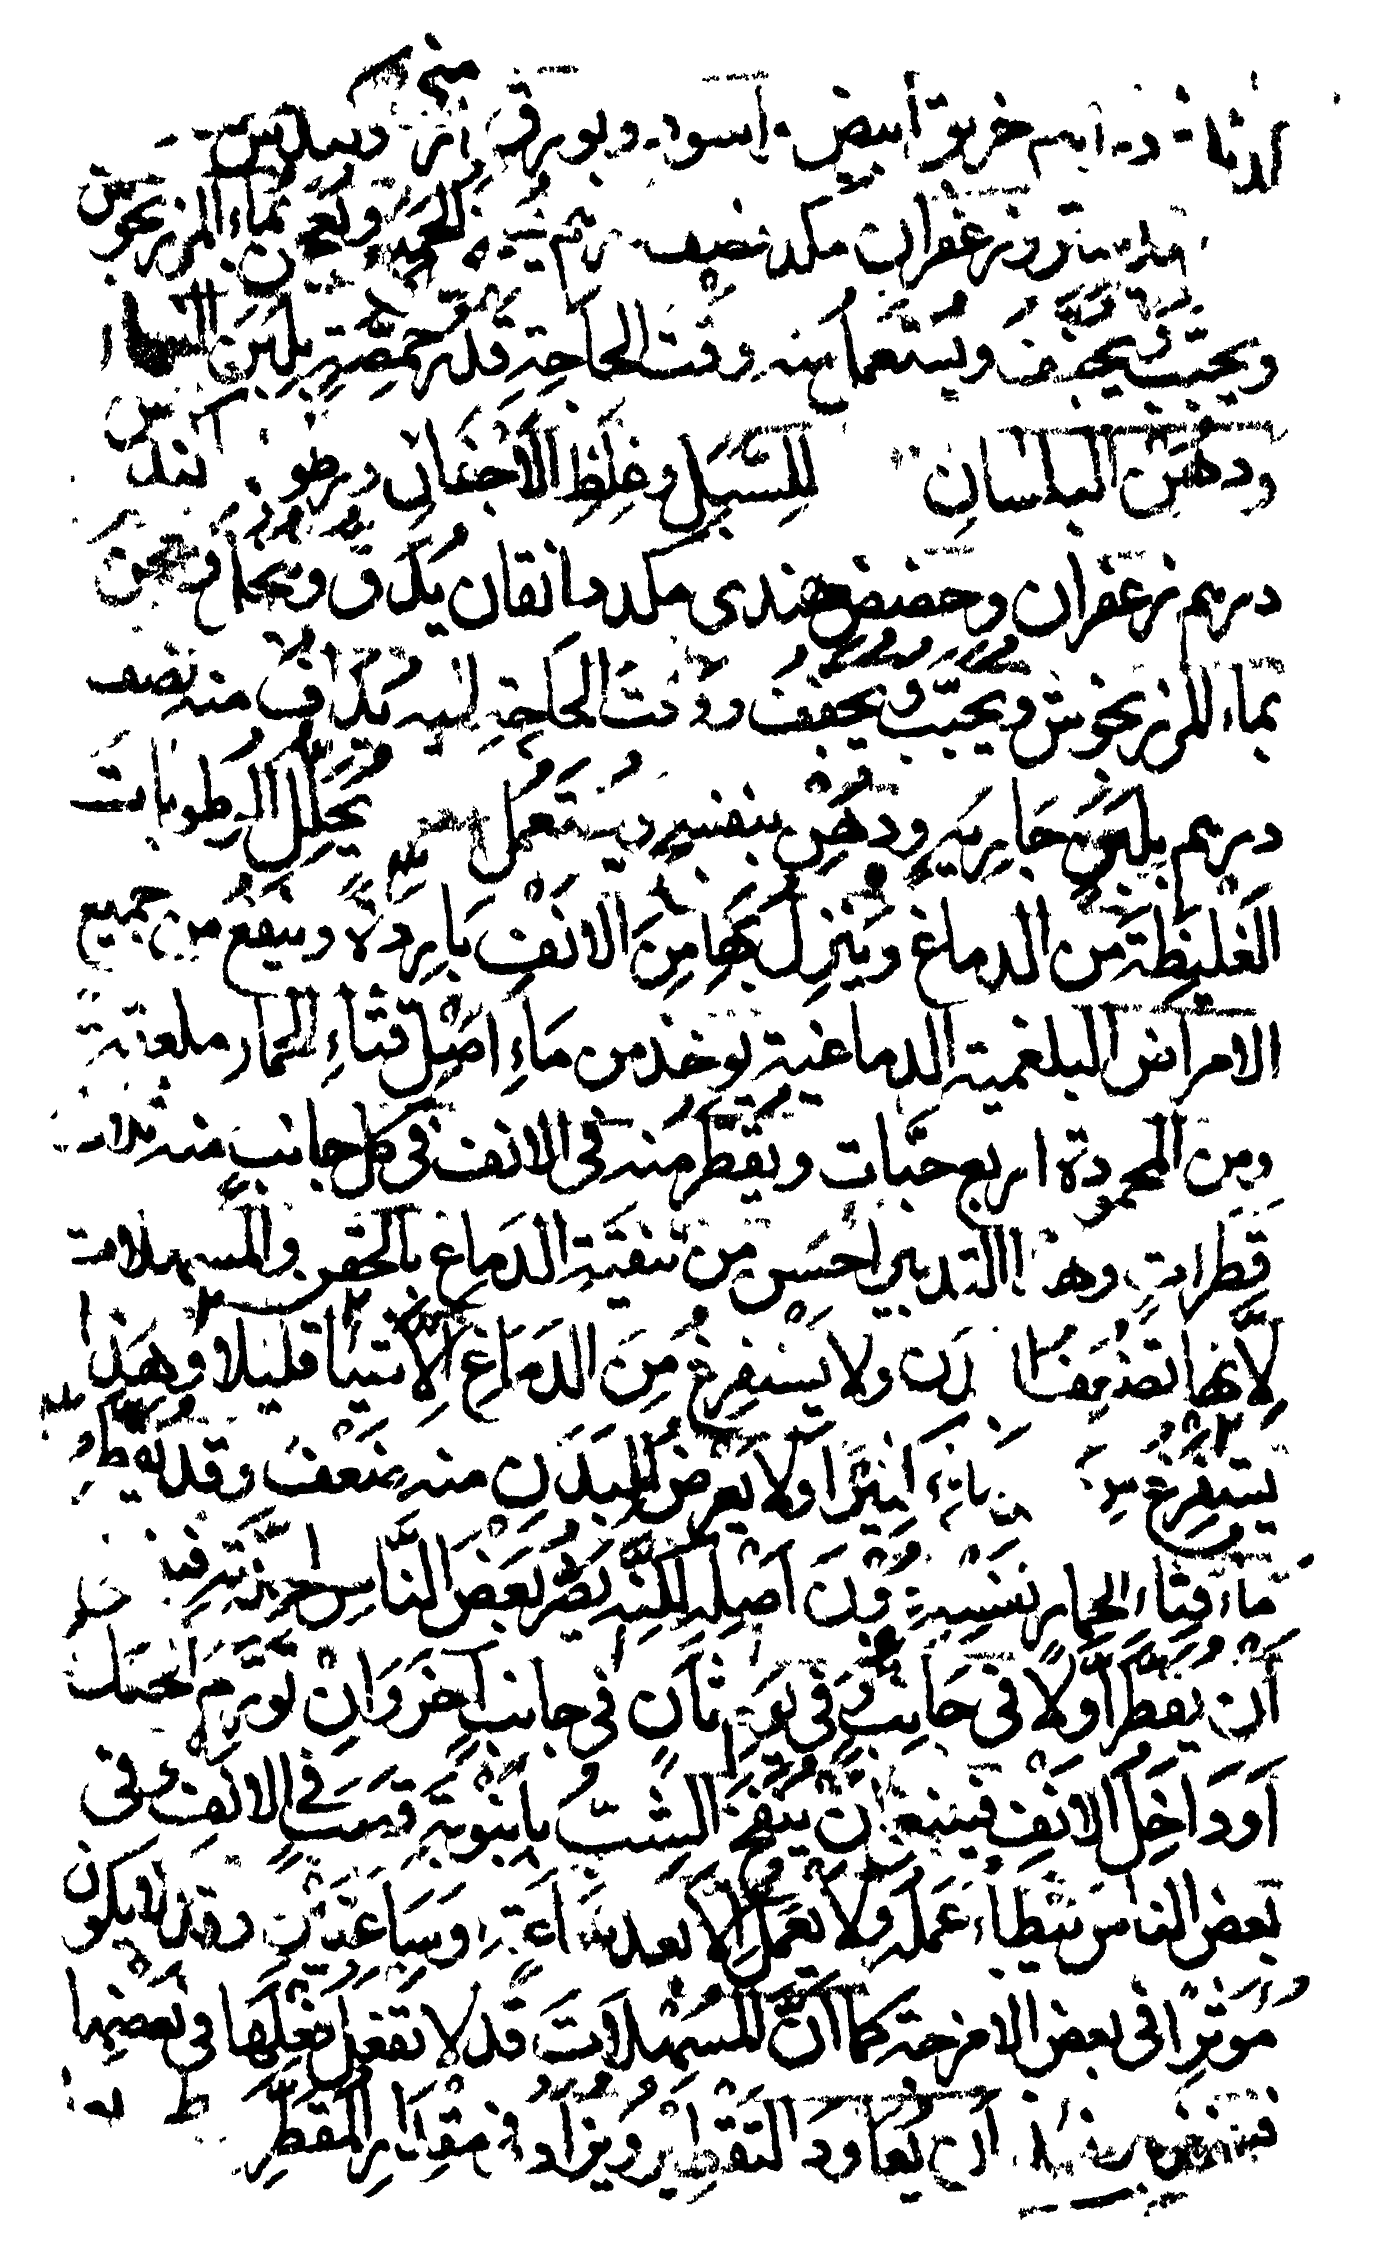 درهم خربق ابيض واسود وبورق
وزعفران مكد نصف درهم ويعجن بماء المرزنجوش
ويحبّب ويجفف ويستعمل منه وقت الحاجة قدر حمصة بلبن النساء
ودهن البلسان للسبل وغلظ الاجفان كندس
درهم زعفران وحضض هندى مكد دانقان يدق وينخل ويعجن
بماء المرزنجوش ويحبّب ويجفف ووقت الحاجة اليه يداف منه نصف
درهم بلبن جارية ودهن بنفسج ويستعمل يحلل الرطوبات
الغليظة من الدماغ وينزل بها من الانف باردة وينفع من جميع
الامراض البلغمية الدماغية يوخذ من ماء اصل قثاء الحمار ملعقة
ومن المحمودة اربع حبّات ويقطر منه فى الانف فى كل جانب منه ثلاث
قطرات وهذا التدبير احسن من تنقية الدماغ بالحقن والمسهلات
لانها تضعف البدن ولا يستفرغ من الدماغ الا شيا قليلا وهذا
يستفرغ كثيرا ولا يعرض للبدن منه ضعف وقد يقطر
ماء قثاء الحمار نفسه دون اصله لكنه يضر بعض الناس
أن يقطر اولا فى جانب وفى يوم ثان فى جانب آخر وان تورم الحنك
او داخل الانف فينبغى ان ينفخ الشب بانبوبة قصب في الانف وفى
بعض الناس يبطاء عمله ولا يعمل الا بعد ساعة وساعتين وقد لا يكون
موثرا فى بعض الامزجة كما أن المسهلات قد لا تفعل فعلها فى بعضها
فينبغى ان يعاود التقطير ويزاد فى مقدار المقطر